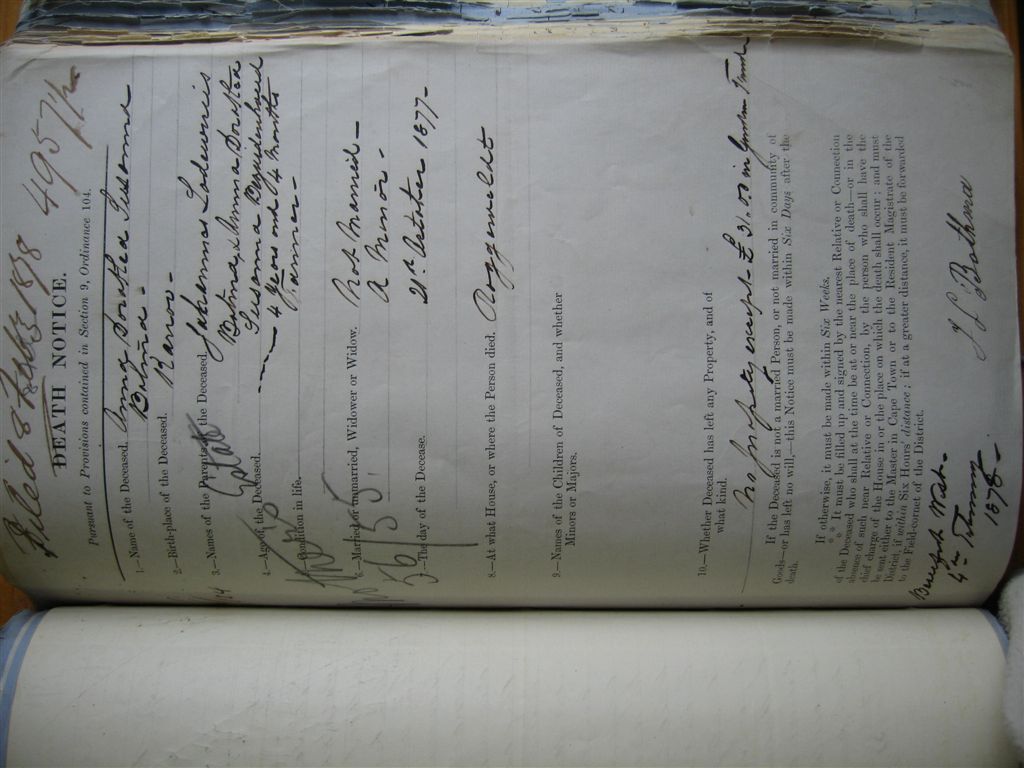 Filed 8 Feb 1878 4957/
DEATH NOTICE.
Pursuant to Provisions contained in Section 9, Ordinance 104.
1.—Name of the Deceased. Anna Dorothea Susanna
Botma -
2.—Birth-place of the Deceased. Karoo -
3.—Names of the Parents of the Deceased. Johannes Lodewicus
Botma & Anna Dorothea
Susanna Bezuidenhoud
4.—Age of the Deceased. 4 Years and 4 Months
5.—Condition in life. Farmer -
Estate
6.—Married or unmarried, Widower or Widow. Not Married -
A Minor -
56/55
7.—The day of the Decease. 21st October 1877 -
8.—At what House, or where the Person died. Roggeveldt
9.—Names of the Children of Deceased, and whether
Minors or Majors.
10.—Whether Deceased has left any Property, and of
what kind. No property except £ 31.00 in
If the Deceased is not a married Person, or not married in community of
Goods—or has left no will,—this Notice must be made within Six Days after the
death.
If otherwise, it must be made within Six Weeks.
* * It must be filled up and signed by the nearest Relative or Connection
of the Deceased who shall at the time be at or near the place of death—or in the
absence of such near Relative or Connection, by the person who shall have the
chief charge of the House in or the place on which the death shall occur; and must
be sent either to the Master in Cape Town or to the Resident Magistrate of the
District, if within Six Hours distance; if at a greater distance, it must be forwarded
to the Field-cornet of the District.
Beaufort West -
4th
1878 -
J L Bothma